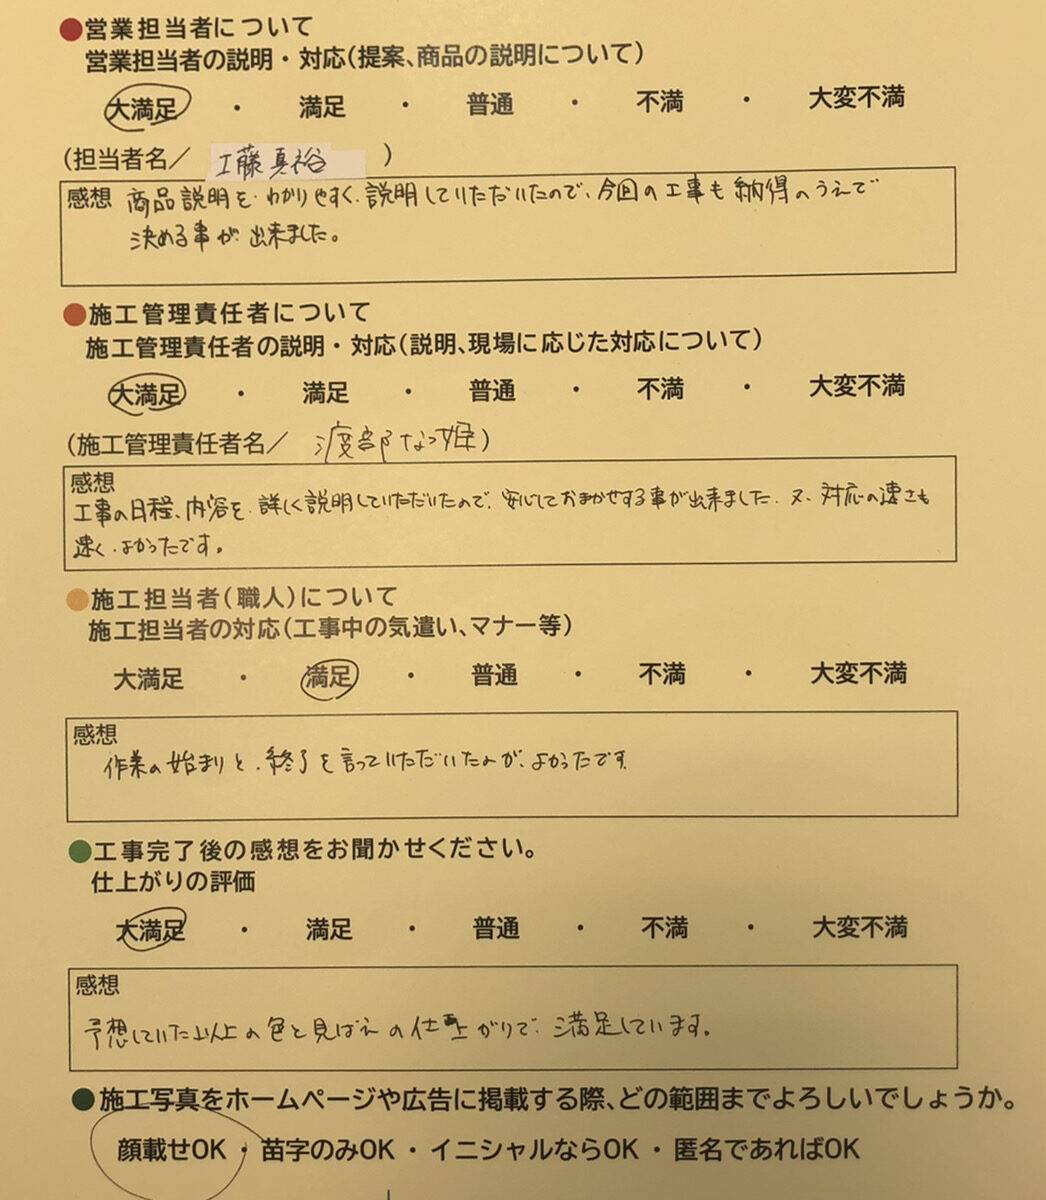 ●営業担当者について
営業担当者の説明・対応(提案、商品の説明について)
大満足 ・ 満足 ・ 普通 ・ 不満 ・ 大変不満
(担当者名／ 工藤真裕 )
感想 商品説明を、わかりやすく、説明していただいたので、今回の工事も納得のうえで
決める事が、出来ました。
●施工管理責任者について
施工管理責任者の説明・対応(説明、現場に応じた対応について)
大満足 ・ 満足 ・ 普通 ・ 不満 ・ 大変不満
(施工管理責任者名／ 渡部なつ姫)
感想
工事の日程、内容を、詳しく説明していただいたので、安心しておまかせする事が出来ました。又、対応の速さも
速く、よかったです。
●施工担当者(職人)について
施工担当者の対応(工事中の気遣い、マナー等)
大満足 ・ 満足 ・ 普通 ・ 不満 ・ 大変不満
感想
作業の始まりと、終了を言っていただいたのが、よかったです
●工事完了後の感想をお聞かせください。
仕上がりの評価
大満足 ・ 満足 ・ 普通 ・ 不満 ・ 大変不満
感想
予想していた以上の色と見ばえの仕上がりで、満足しています。
●施工写真をホームページや広告に掲載する際、どの範囲までよろしいでしょうか。
顔載せOK ・ 苗字のみOK ・ イニシャルならOK ・ 匿名であればOK